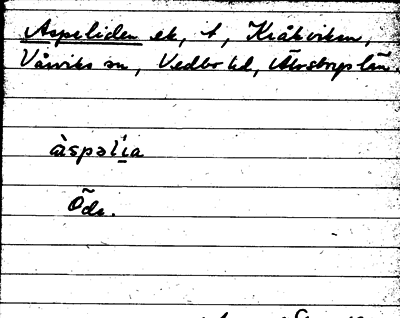 Aspeliden ek, t, Kråkviken,
Vårviks sn, Vedbo hd, Älvsborgs län.
àspəlía
Öde.